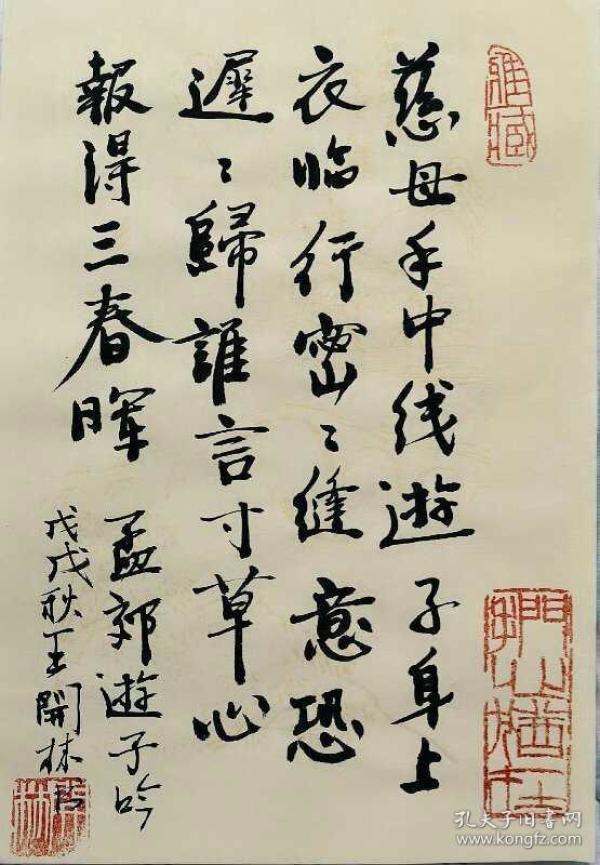 慈母手中线遊子身上
衣临行密〻缝意恐
遲〻歸誰言寸草心
報得三春暉
孟郊遊子吟
戊戌秋王開林书
雅藏
孔夫子旧书网
www.kongfz.com